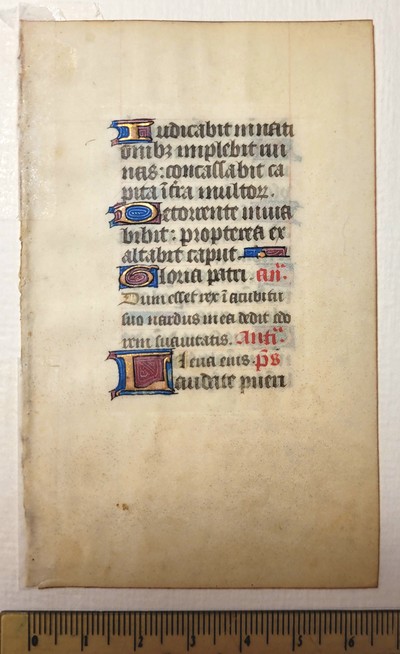 Iudicabit in nati
onibꝫ implebit rui
nas: concassabit ca
pita ītra multoꝝ.
De torrente in uia
bibit: propterea ex
altabit caput.
Gloria patri. añ.
Dum esset rex ī acubitu
suo nardus mea dedit odo
rem suauitatis. Anti.
Leua eius. p̄s
Laudate pueri
0 1 2 3 4 5 6